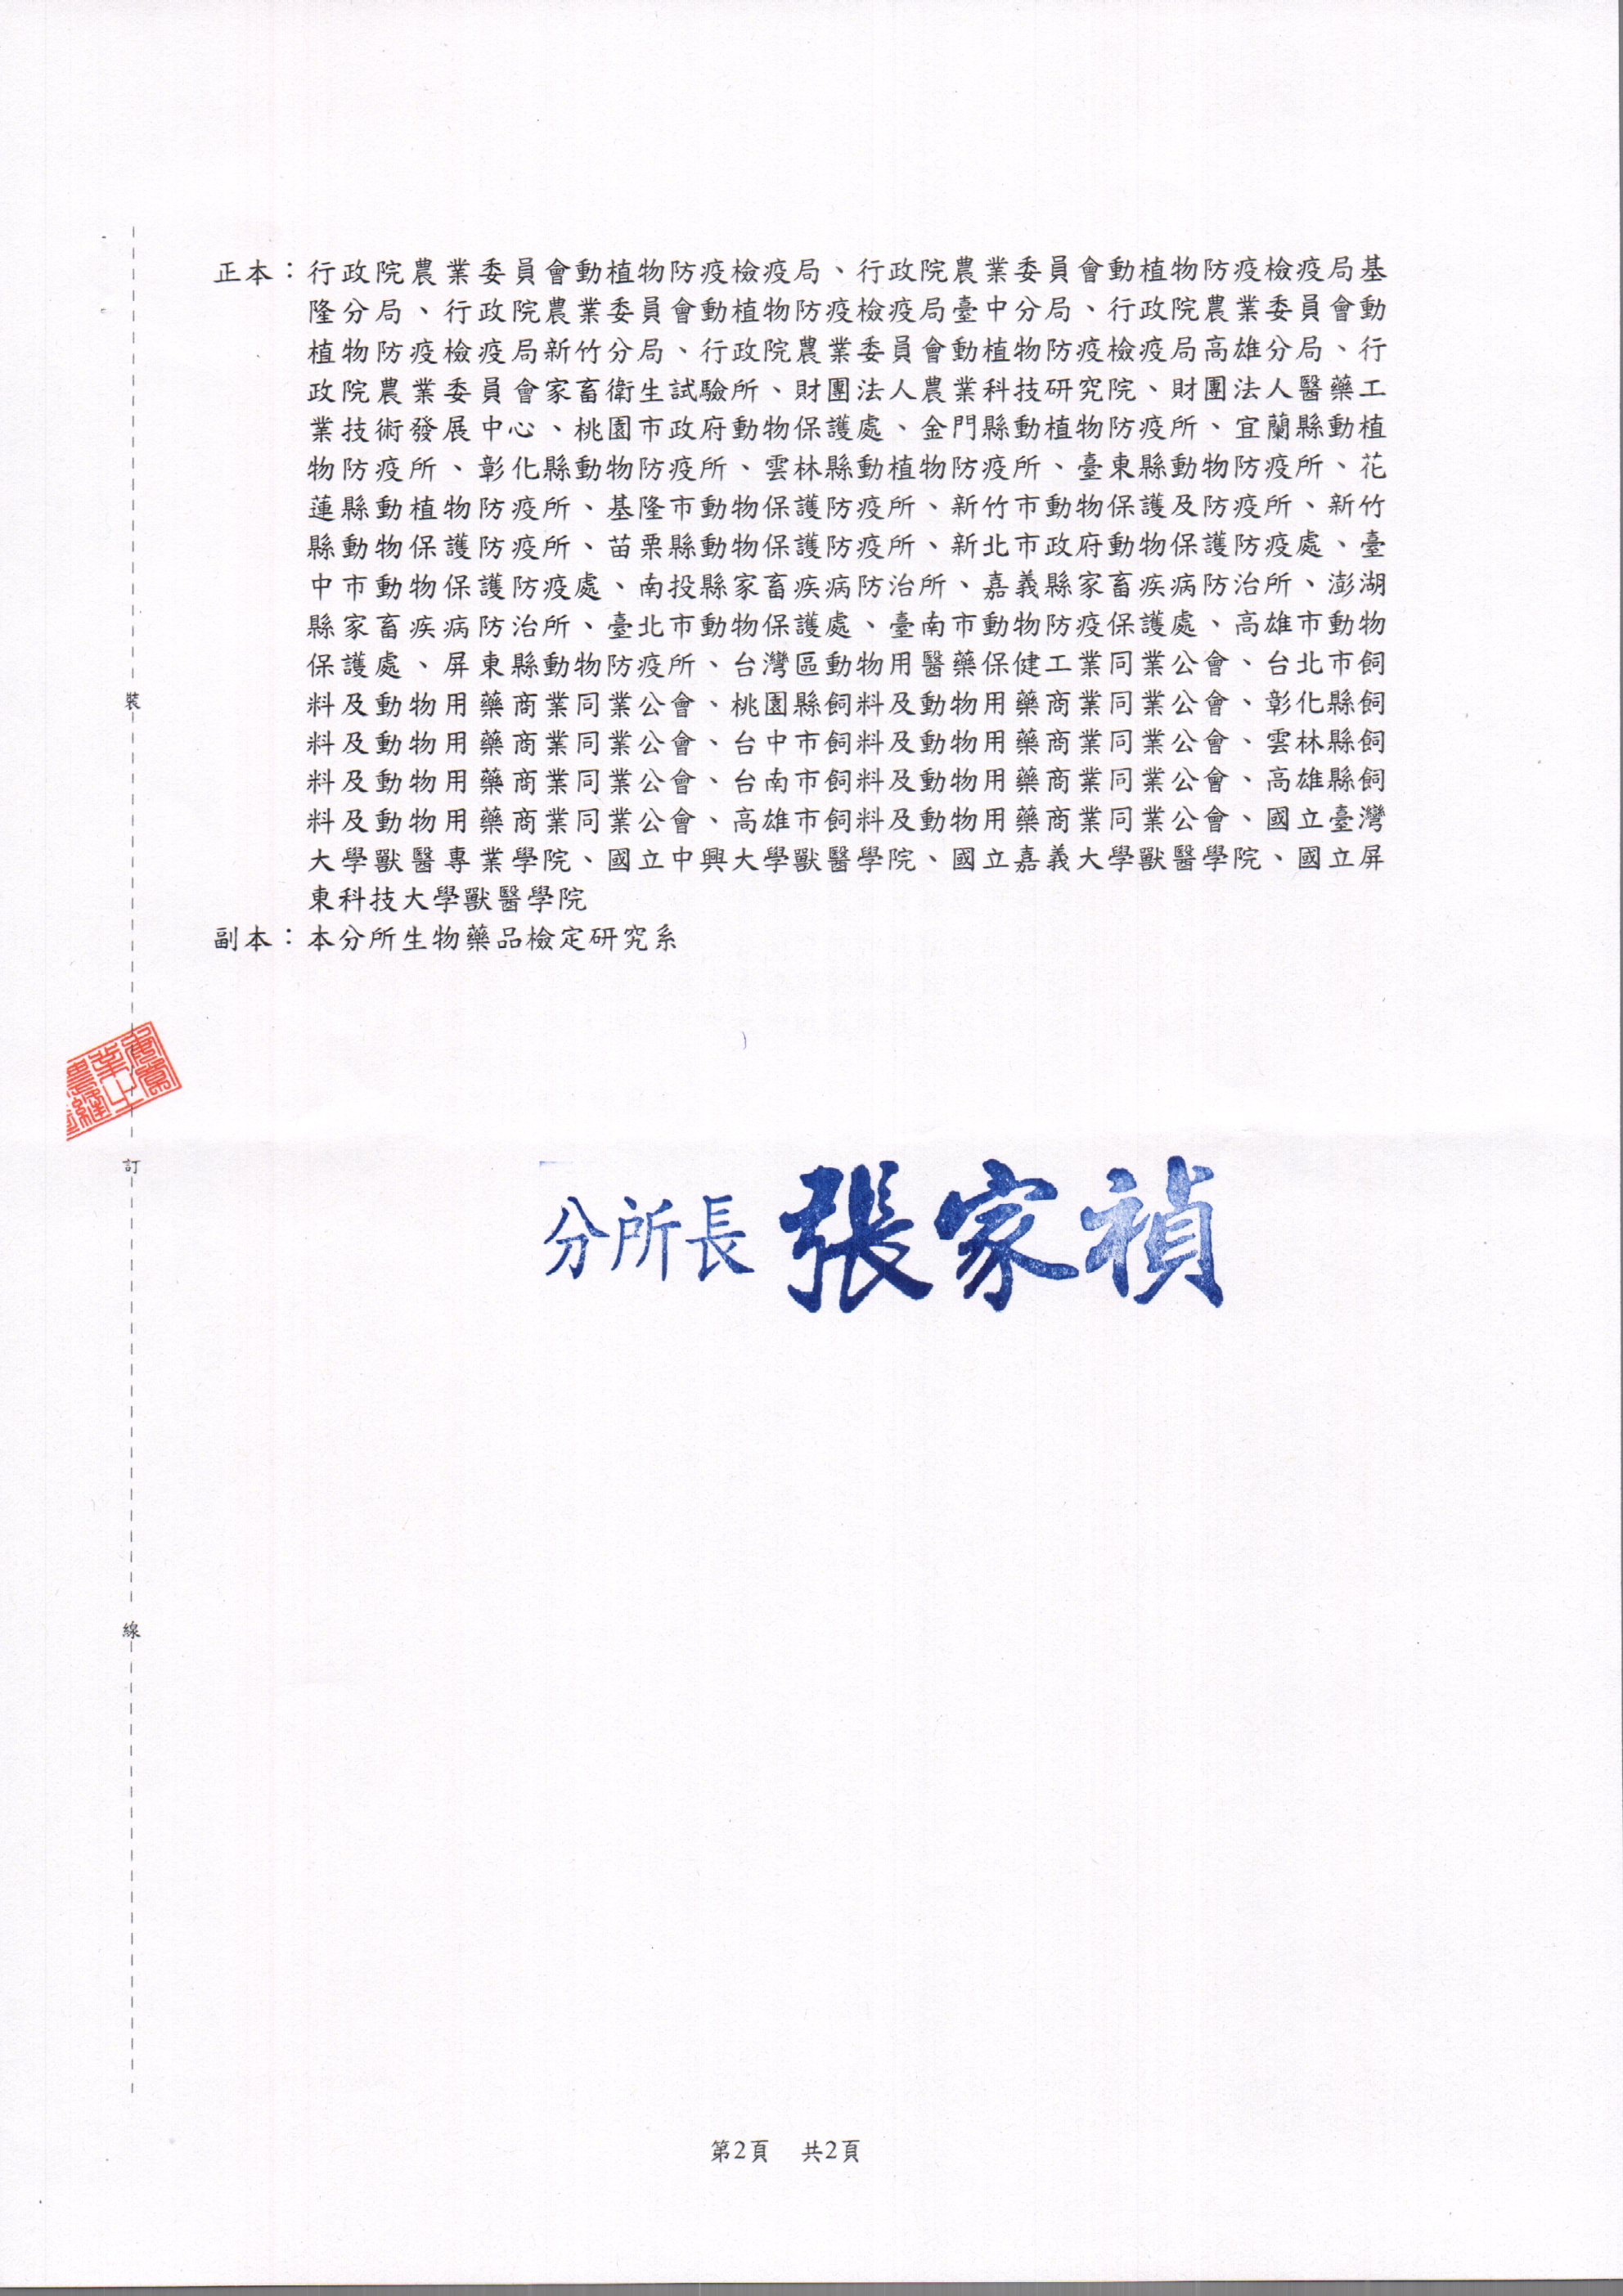 正本：行政院農業委員會動植物防疫檢疫局、行政院農業委員會動植物防疫檢疫局基
隆分局、行政院農業委員會動植物防疫檢疫局臺中分局、行政院農業委員會動
植物防疫檢疫局新竹分局、行政院農業委員會動植物防疫檢疫局高雄分局、行
政院農業委員會家畜衛生試驗所、財團法人農業科技研究院、財團法人醫藥工
業技術發展中心、桃園市政府動物保護處、金門縣動植物防疫所、宜蘭縣動植
物防疫所、彰化縣動物防疫所、雲林縣動植物防疫所、臺東縣動物防疫所、花
蓮縣動植物防疫所、基隆市動物保護防疫所、新竹市動物保護及防疫所、新竹
縣動物保護防疫所、苗栗縣動物保護防疫所、新北市政府動物保護防疫處、臺
中市動物保護防疫處、南投縣家畜疾病防治所、嘉義縣家畜疾病防治所、澎湖
縣家畜疾病防治所、臺北市動物保護處、臺南市動物防疫保護處、高雄市動物
保護處、屏東縣動物防疫所、台灣區動物用醫藥保健工業同業公會、台北市飼
料及動物用藥商業同業公會、桃園縣飼料及動物用藥商業同業公會、彰化縣飼
料及動物用藥商業同業公會、台中市飼料及動物用藥商業同業公會、雲林縣飼
料及動物用藥商業同業公會、台南市飼料及動物用藥商業同業公會、高雄縣飼
料及動物用藥商業同業公會、高雄市飼料及動物用藥商業同業公會、國立臺灣
大學獸醫專業學院、國立中興大學獸醫學院、國立嘉義大學獸醫學院、國立屏
東科技大學獸醫學院
副本：本分所生物藥品檢定研究系
裝
訂
線
分所長 張家禎
第2頁 共2頁